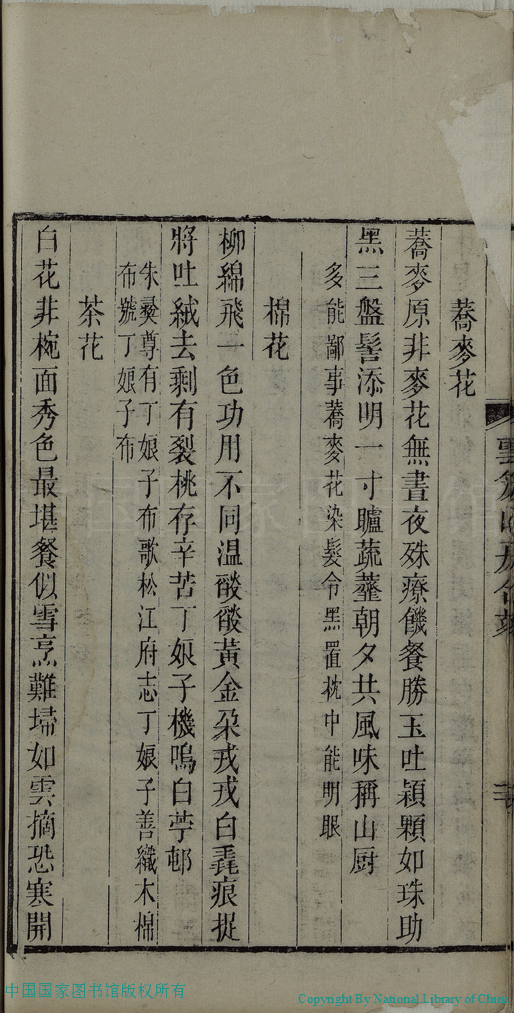 蕎麥花
蕎麥原非麥花無晝夜殊療饑餐勝玉吐穎顆如珠助
黑三盤髻添明一寸矑蔬虀朝夕共風味稱山厨
多能鄙事蕎麥花染髮令黑置枕中能明眼
棉花
柳綿飛一色功用不同温燄燄黃金朵戎戎白毳痕捉
將吐絨去剩有裂桃存辛苦丁娘子機鳴白苧邨
朱彞尊有丁娘子布歌松江府志丁娘子善織木棉
布號丁娘子布
茶花
白花非椀面秀色最堪餐似雪烹難埽如雲摘恐寒開
中国国家图书馆版权所有
Copyright By National Library of China